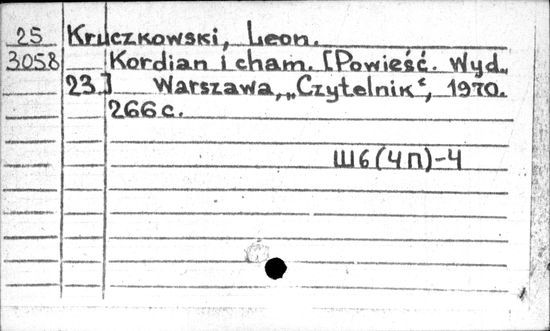 25 Kruczkowski, Leon.
3058 Kordian i cham. [Powieść. Wyd.
23.] Warszawa, „Czytelnik“, 1970.
266 с.
Ш6(4П)-4